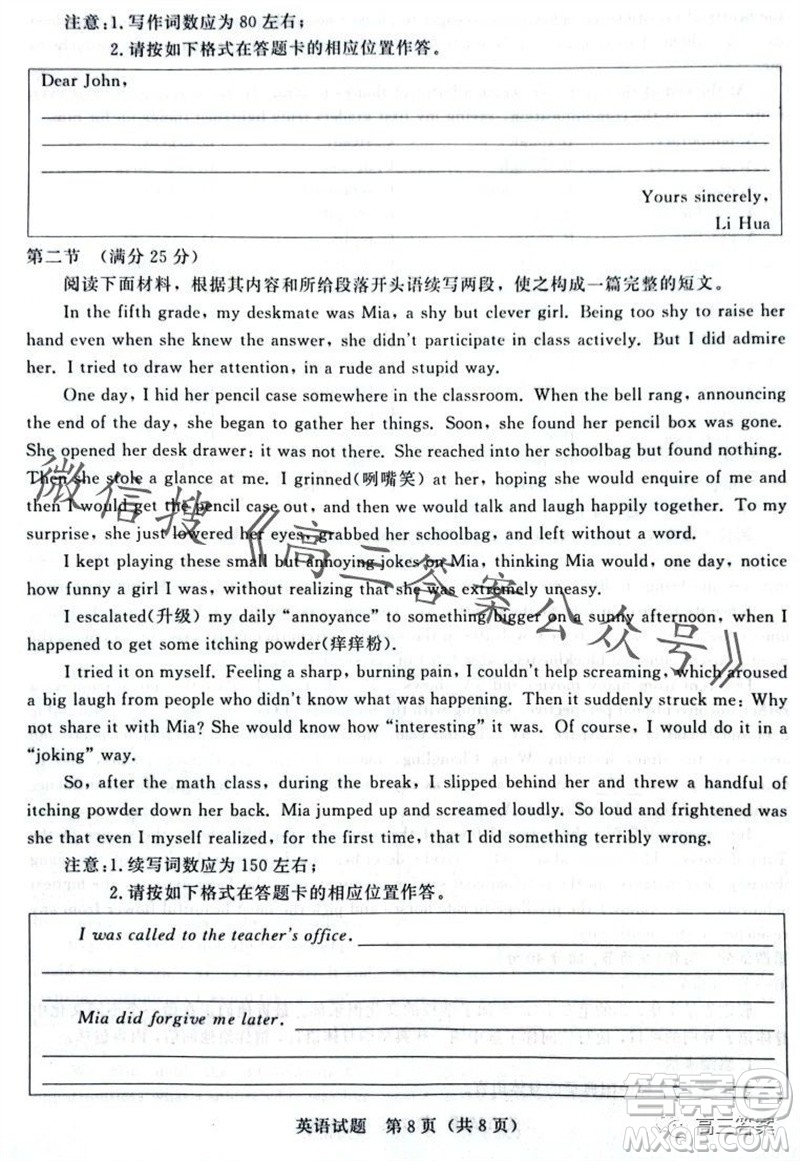 注意:1.写作词数应为80左右;
2.请按如下格式在答题卡的相应位置作答。
Dear John,
Yours sincerely,
Li Hua
第二节 (满分25分)
阅读下面材料,根据其内容和所给段落开头语续写两段,使之构成一篇完整的短文。
In the fifth grade, my deskmate was Mia, a shy but clever girl. Being too shy to raise her
hand even when she knew the answer, she didn't participate in class actively. But I did admire
her. I tried to draw her attention, in a rude and stupid way.
One day, I hid her pencil case somewhere in the classroom. When the bell rang, announcing
the end of the day, she began to gather her things. Soon, she found her pencil box was gone.
She opened her desk drawer: it was not there. She reached into her schoolbag but found nothing.
Then she stole a glance at me. I grinned(咧嘴笑) at her, hoping she would enquire of me and
then I would get the pencil case out, and then we would talk and laugh happily together. To my
surprise, she just lowered her eyes, grabbed her schoolbag, and left without a word.
I kept playing these small but annoying jokes on Mia, thinking Mia would, one day, notice
how funny a girl I was, without realizing that she was extremely uneasy.
I escalated(升级) my daily “annoyance” to something bigger on a sunny afternoon, when I
happened to get some itching powder(痒痒粉).
I tried it on myself. Feeling a sharp, burning pain, I couldn't help screaming, which aroused
a big laugh from people who didn't know what was happening. Then it suddenly struck me: Why
not share it with Mia? She would know how “interesting” it was. Of course, I would do it in a
“joking” way.
So, after the math class, during the break, I slipped behind her and threw a handful of
itching powder down her back. Mia jumped up and screamed loudly. So loud and frightened was
she that even I myself realized, for the first time, that I did something terribly wrong.
注意:1.续写词数应为150左右;
2.请按如下格式在答题卡的相应位置作答。
I was called to the teacher's office.
Mia did forgive me later.
英语试题 第8页(共8页)
微信搜《高三答案公众号》
高三答案
答案圈
MXQE.COM